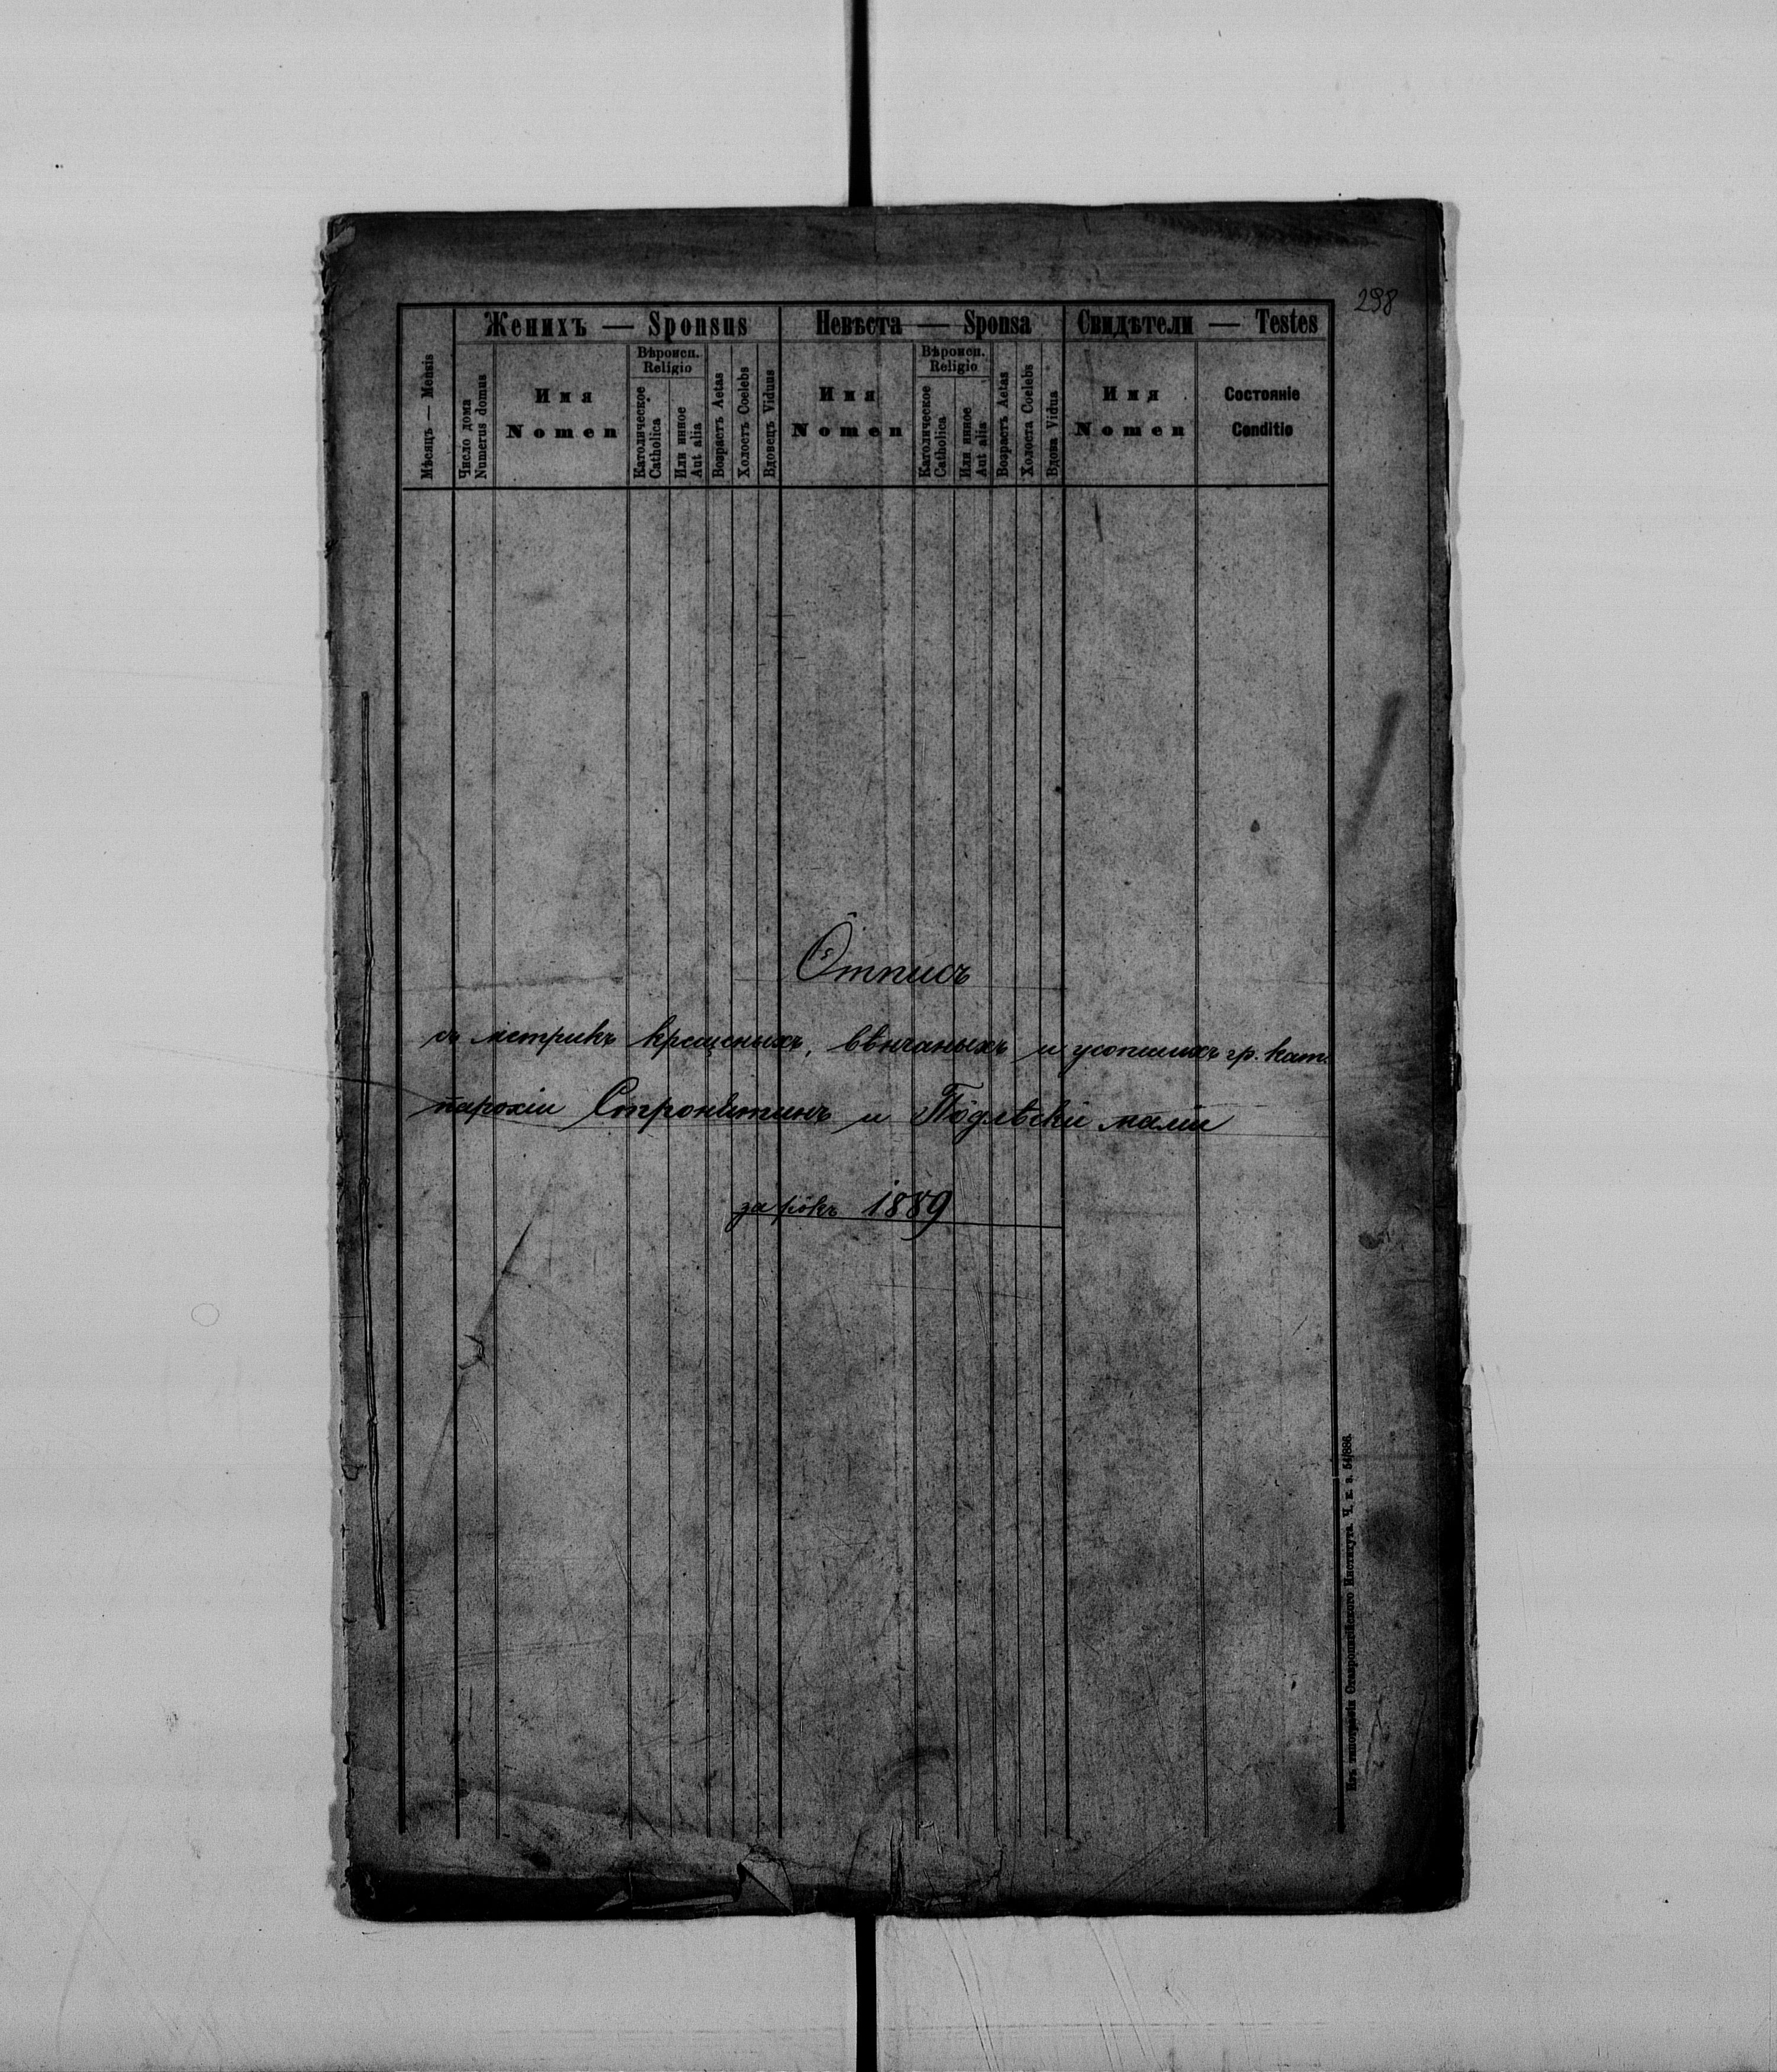 298
Женихъ — Sponsus
Невѣста — Sponsa
Свидѣтели — Testes
Мѣсяцъ — Mensis
Число дома
Numerus domus
Имя
Nomen
Вѣроисп.
Religio
Католическое
Catholica
Или инное
Aut alia
Возрастъ Aetas
Холостъ Coelebs
Вдовецъ Viduus
Имя
Nomen
Вѣроисп.
Religio
Католическое
Catholica
Или инное
Aut alia
Возрастъ Aetas
Холоста Coelebs
Вдова Vidua
Имя
Nomen
Состояніе
Conditio
Ôтписъ
съ метрикъ крещеныхъ, вѣнчаныхъ и усопшихъ гр. кат.
парохіи Стронятинъ и Пôдлѣски маліи
за рôкъ 1889
Изъ типографіи Ставропигійского Института. Ч. к. в.